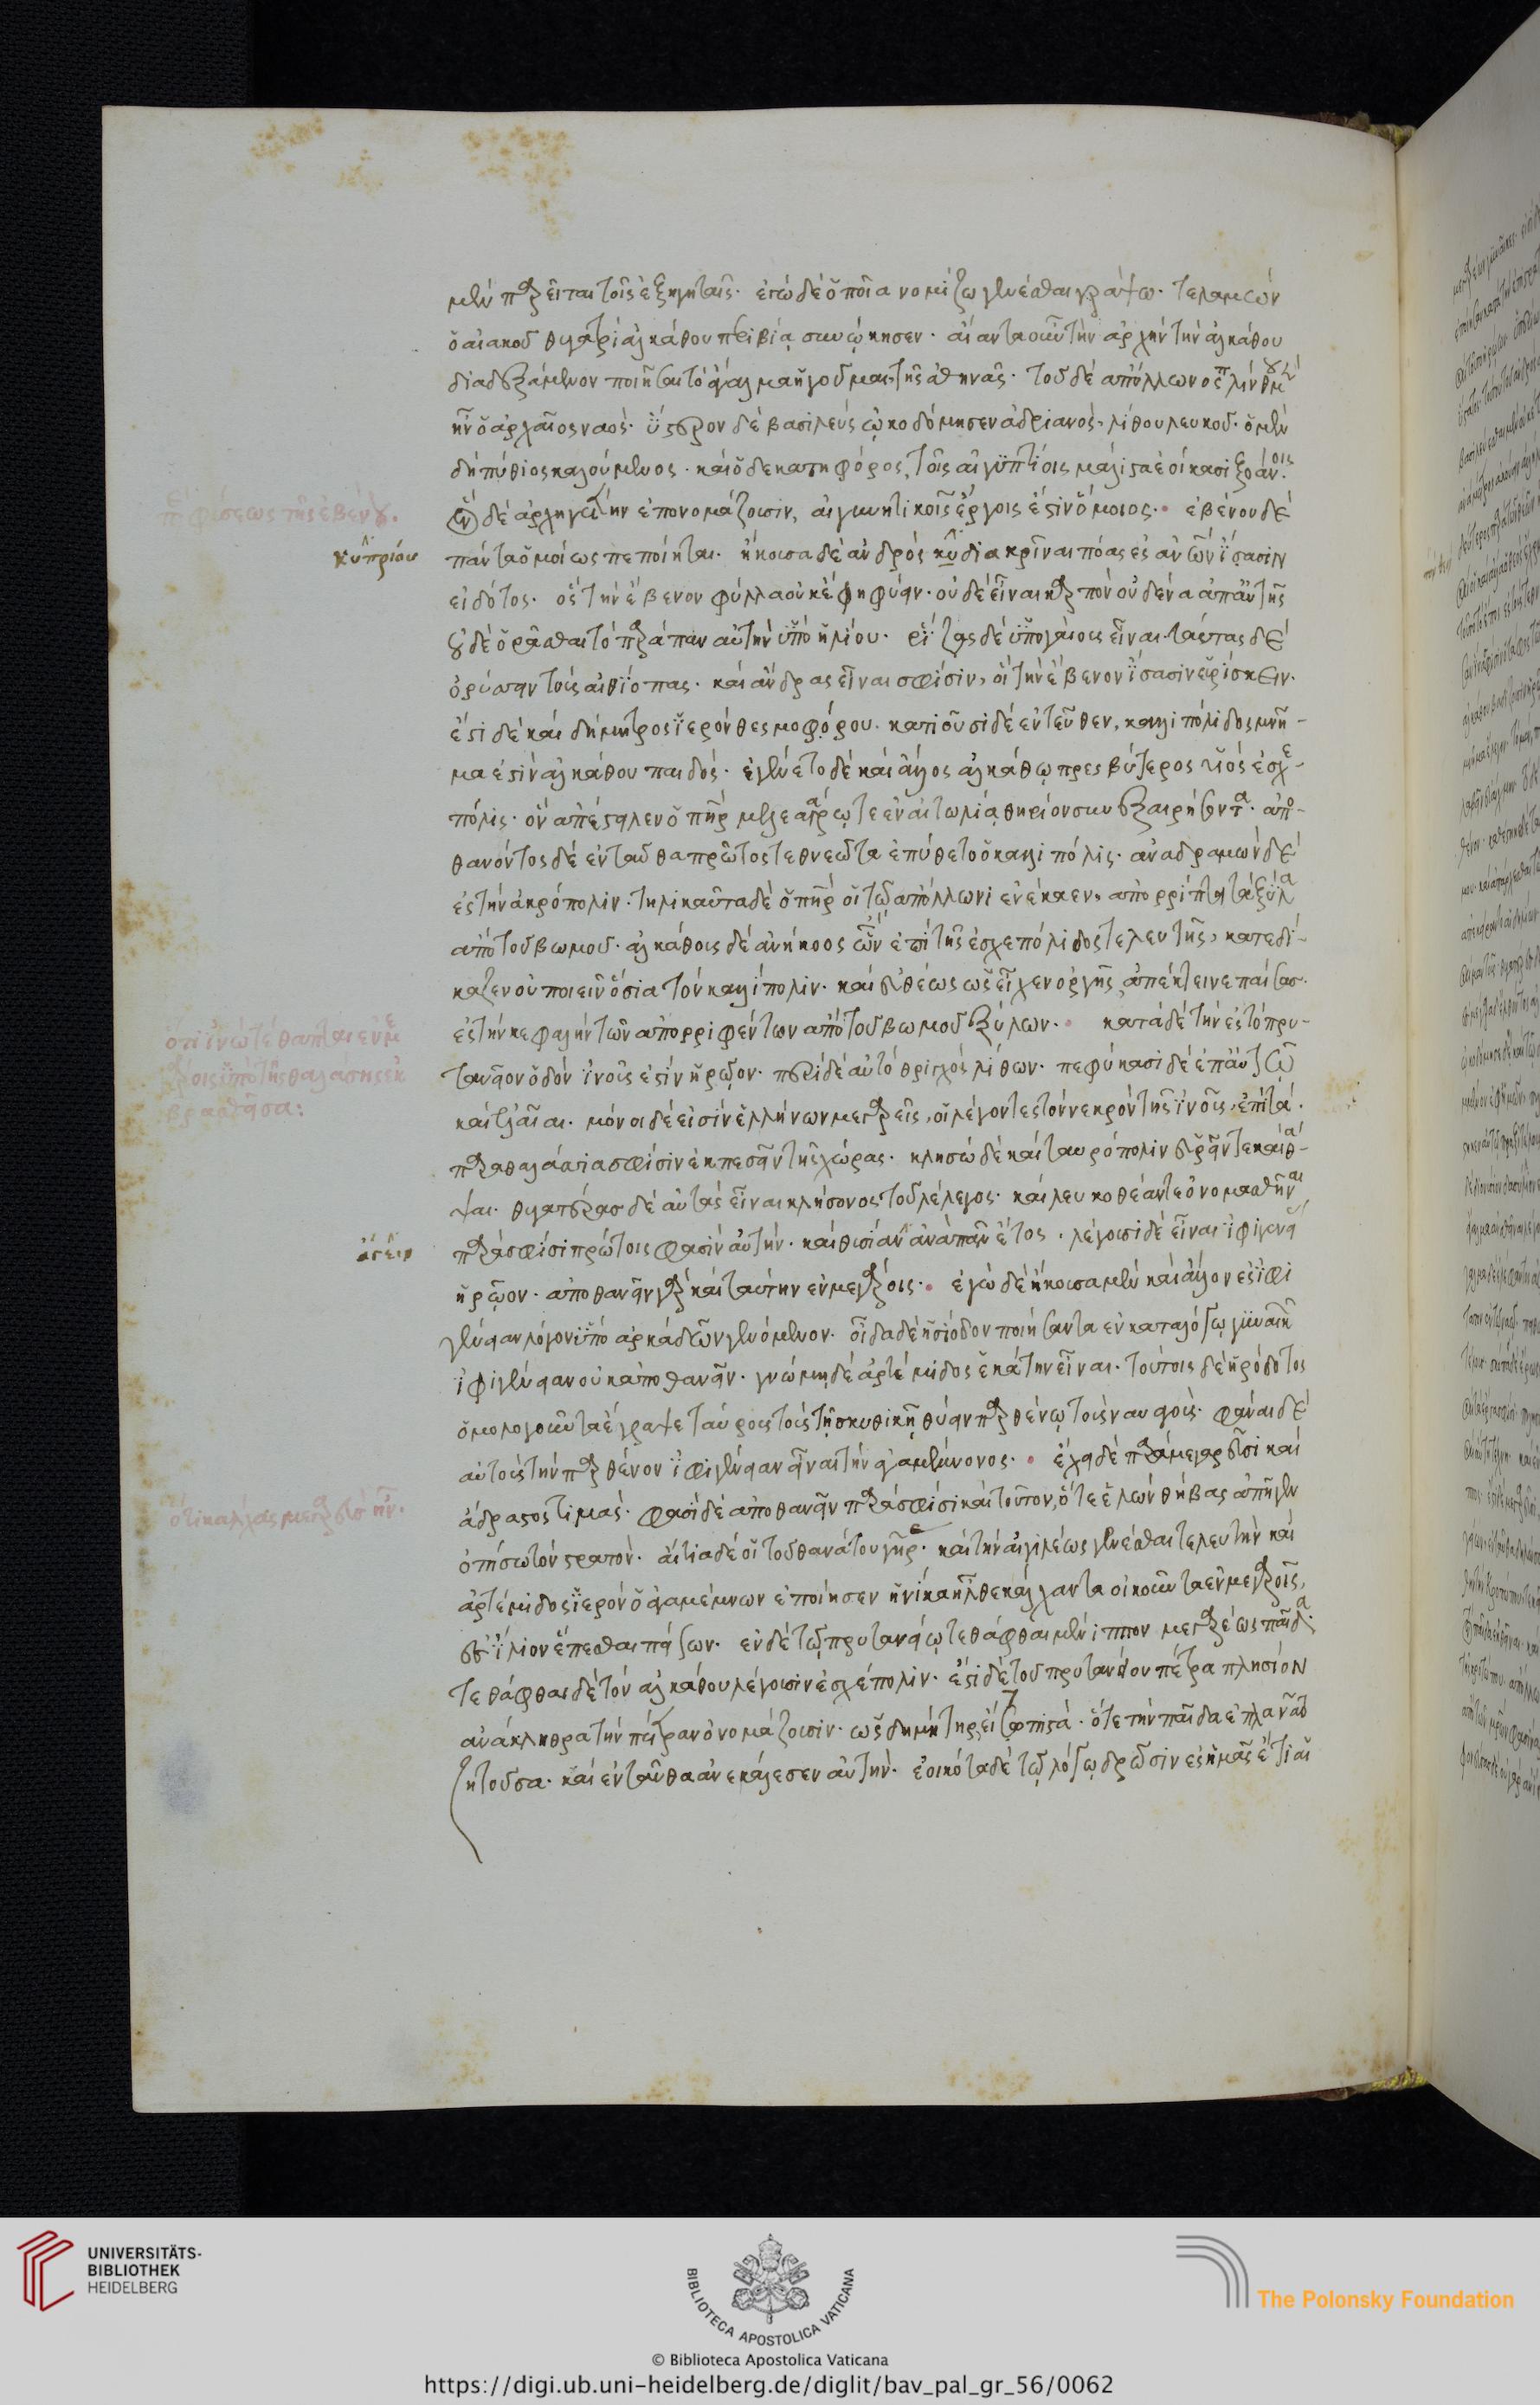 μὲν παρεῖται τοῖς ἐξηγηταῖς· ἐγὼ δὲ ὁποῖα νομίζω γενέσθαι γράψω· τελαμὼν
ὁ αἰακοῦ θυγατρὶ ἀλκάθου περιβίᾳ συνῴκησεν· αἴαντα οὖν τὴν ἀρχὴν τὴν ἀλκάθου
διαδεξάμενον ποιῆσαι τὸ ἄγαλμα ἡγοῦμαι τῆς ἀθηνᾶς· τοῦ δὲ ἀπόλλωνος πλίνθου μὲν
ἦν ὁ ἀρχαῖος ναός· ὕστερον δὲ βασιλεὺς ᾠκοδόμησεν ἀδριανός λίθου λευκοῦ· ὁ μὲν
δὴ πύθιος καλούμενος· καὶ ὁ δεκατηφόρος, τοῖς αἰγυπτίοις μάλιστα ἐοίκασι ξοάνοις·
ὃν δὲ ἀρχηγέτην ἐπονομάζουσιν, αἰγινητικοῖς ἔργοις ἐστὶν ὅμοιος· ἐβένου δὲ
πάντα ὁμοίως πεποίηται· ἤκουσα δὲ ἀνδρὸς κυδία κρῖναι πόας ἐς ἀνδῶν ἴσασιν
εἰδότος· ὃς τὴν ἔβενον φύλλα οὐκ ἔφη φύειν· οὐδὲ εἶναι καρπὸν οὐδένα ἀπ' αὐτῆς
οὐδὲ ὁρᾶσθαι τὸ παράπαν αὐτὴν ὑπὸ ἡλίου· ῥίζας δὲ ὑπογαίους εἶναι ταύτας δὲ
ὀρύσσειν τοὺς αἰθίοπας· καὶ ἄνδρας εἶναι σφίσιν, οἳ τὴν ἔβενον ἴσασιν εὑρίσκειν·
ἔστι δὲ καὶ δήμητρος ἱερὸν θεσμοφόρου· κατιοῦσι δὲ ἐντεῦθεν, καλλιπόλιδος μνῆ-
μα ἐστὶν ἀλκάθου παιδός· ἐγένετο δὲ καὶ ἄλλος ἀλκάθῳ πρεσβύτερος υἱὸς ἐσχέ-
πόλις· ὃν ἀπέστειλεν ὁ πατὴρ μελεάγρῳ τε ἐν αἰτωλίᾳ θηρίον συνεξαιρήσοντα· ἀπο-
θανόντος δὲ ἐνταῦθα πρῶτος τεθνεῶτα ἐπύθετο ὁ καλλίπόλις· ἀναδραμὼν δὲ
ἐς τὴν ἀκρόπολιν· τηλικαῦτα δὲ ὁ πατὴρ οἱ τῷ ἀπόλλωνι ἐνέκαεν, ἀπορρίπτει τὰ ξύλα
ἀπὸ τοῦ βωμοῦ· ἀλκάθους δὲ ἀνήκοος ὢν ἐπὶ τῆς ἐσχεπόλιδος τελευτῆς, κατεδί-
καζεν οὐ ποιεῖν ὅσια τὸν καλλίπολιν· καὶ εὐθέως ὡς εἶχεν ὀργῆς ἀπέκτεινε παίσας
ἐς τὴν κεφαλὴν τῶν ἀπορριφέντων ἀπὸ τοῦ βωμοῦ ξύλων· κατὰ δὲ τὴν ἐς τὸ πρυ-
τανεῖον ὁδὸν ἰνοῦς ἐστὶν ἡρῷον· περὶ δὲ αὐτὸ θριγκὸς λίθων· πεφύκασι δὲ ἐπ' αὐτῷ
καὶ ἐλαῖαι· μόνοι δὲ εἰσὶν ἑλλήνων μεγαρεῖς, οἱ λέγοντες τὸν νεκρὸν τῆς ἰνοῦς, ἐπὶ τὰ
παραθαλάσσια σφίσιν ἐκπεσεῖν τῆς χώρας· κλησὼ δὲ καὶ ταυρόπολιν εὑρεῖν τε καὶ θά-
ψαι· θυγατέρας δὲ αὐτὰς εἶναι κλήσονος τοῦ λέλεγος· καὶ λευκοθέαν τε ὀνομασθῆναι
παρὰ σφίσι πρώτοις φασὶν αὐτήν· καὶ θυσίαν ἀνὰ πᾶν ἔτος· λέγουσι δὲ εἶναι ἰφιγενεί
ἡρῷον· ἀποθανεῖν γὰρ καὶ ταύτην ἐν μεγάροις· ἐγὼ δὲ ἤκουσα μὲν καὶ ἄλλον ἐς ἰφι
γένειαν λόγον ὑπὸ ἀρκάδων γενόμενον· οἶδα δὲ ἡσίοδον ποιήσαντα ἐν καταλόγῳ γυναικῶν
ἰφιγένειαν οὐκ ἀποθανεῖν· γνώμῃ δὲ ἀρτέμιδος ἑκάτην εἶναι· τούτοις δὲ ἡρόδοτος
ὁμολογοῦντα ἔγραψε ταύρους τοὺς τῇ σκυθικῇ θύειν παρθένῳ τοὺς ναυαγούς· φάναι δὲ
αὐτοὺς τὴν παρθένον ἰφιγένειαν εἶναι τὴν ἀγαμέμνονος· ἔχει δὲ παρὰ μεγαρεῦσι καὶ
ἄδραστος τιμάς· φασὶ δὲ ἀποθανεῖν παρὰ σφίσι καὶ τοῦτον, ὅτε ἑλὼν θήβας ἀπῆγεν
ὀπίσω τὸν στρατόν· αἴτια δέ οἱ τοῦ θανάτου γῆρας· καὶ τὴν αἰγιαλέως γενέσθαι τελευτὴν καὶ
ἀρτέμιδος ἱερὸν ὁ ἀγαμέμνων ἐποίησεν ἡνίκα ἦλθε κάλχαντα οἰκοῦντα ἐν μεγάροις,
ἐς ἴλιον ἕπεσθαι πείσων· ἐν δὲ τῷ πρυτανείῳ τεθάφθαι μὲν ἵππον μεγαρέως παῖδα·
τεθάφθαι δὲ τὸν ἀλκάθου λέγουσιν ἐσχέπολιν· ἔστι δὲ τοῦ πρυτανείου πέτρα πλησίον
ἀνακλήθρα τὴν πέτραν ὀνομάζουσιν· ὡς δημήτηρ, εἴ τῳ πιστά· ὅτε τὴν παῖδα ἐπλανᾶτο
ζητοῦσα· καὶ ἐνταῦθα ἀνεκάλεσεν αὐτήν· ἐοικότα δὲ τῷ λόγῳ δρῶσιν ἐς ἡμᾶς ἔτι αἱ
περὶ φύσεως τῆς ἐβένου·
κυπρίου
ὅτι ἰνὼ τέθαπται ἐν με
γάροις ὑπὸ τῆς θαλάσσης ἐκ
βρασθεῖσα:
ἄγειν
ὅτι κάλχας μεγαρεὺς ἦν·
UNIVERSITÄTS-
BIBLIOTHEK
HEIDELBERG
BIBLIOTECA APOSTOLICA VATICANA
The Polonsky Foundation
© Biblioteca Apostolica Vaticana
https://digi.ub.uni-heidelberg.de/diglit/bav_pal_gr_56/0062